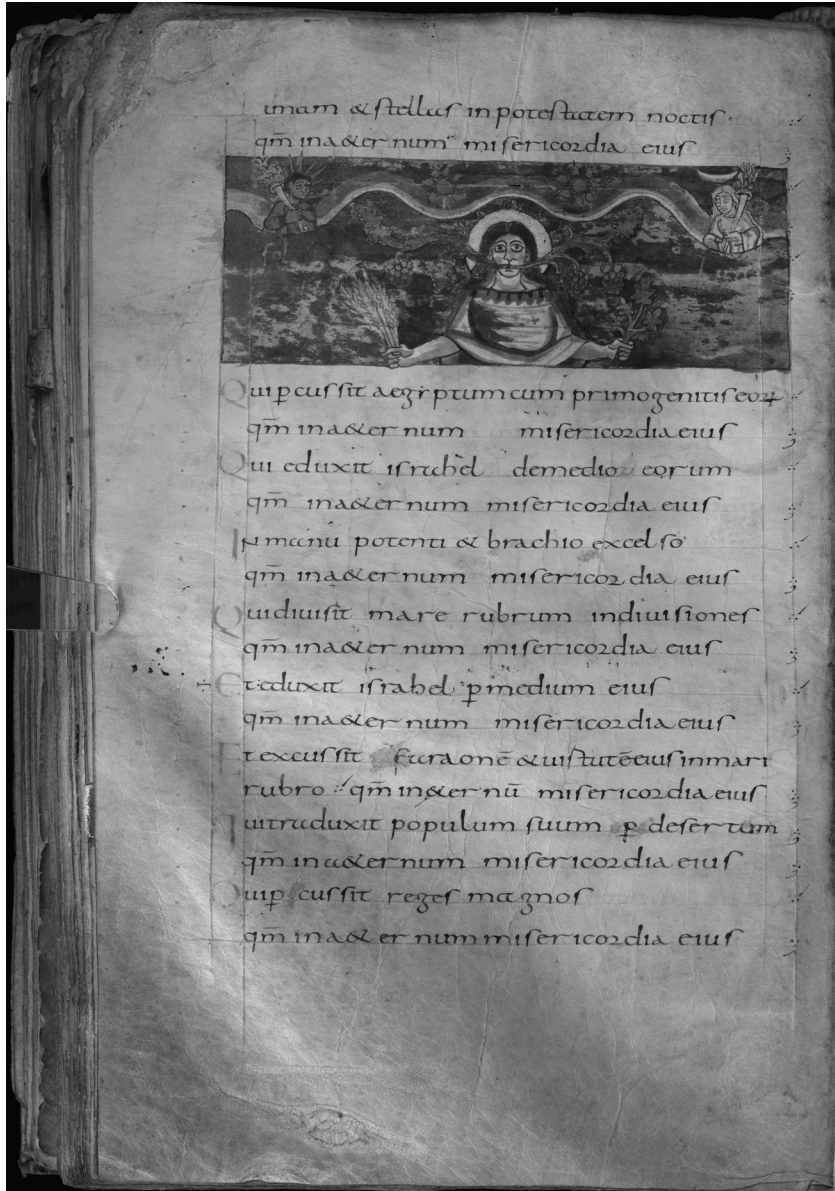 unam & stellas in potestatem noctis·
qm̄ in a&ernum misericordia eius
Qui ꝑcussit aegyptum cum primogenitis eoꝝ
qm̄ in a&ernum misericordia eius
Qui eduxit israhel demedio eorum
qm̄ in a&ernum misericordia eius
IN manu potenti & brachio excelso
qm̄ in a&ernum misericordia eius
Qui diuisit mare rubrum in diuisiones
qm̄ in a&ernum misericordia eius
Et eduxit israhel ꝑ medium eius
qm̄ in a&ernum misericordia eius
Et excussit faraonē & uirtutē eius in mari
rubro qm̄ in &ernū misericordia eius
Qui traduxit populum suum ꝑ desertum
qm̄ in a&ernum misericordia eius
Qui ꝑcussit reges magnos
qm̄ in a&ernum misericordia eius